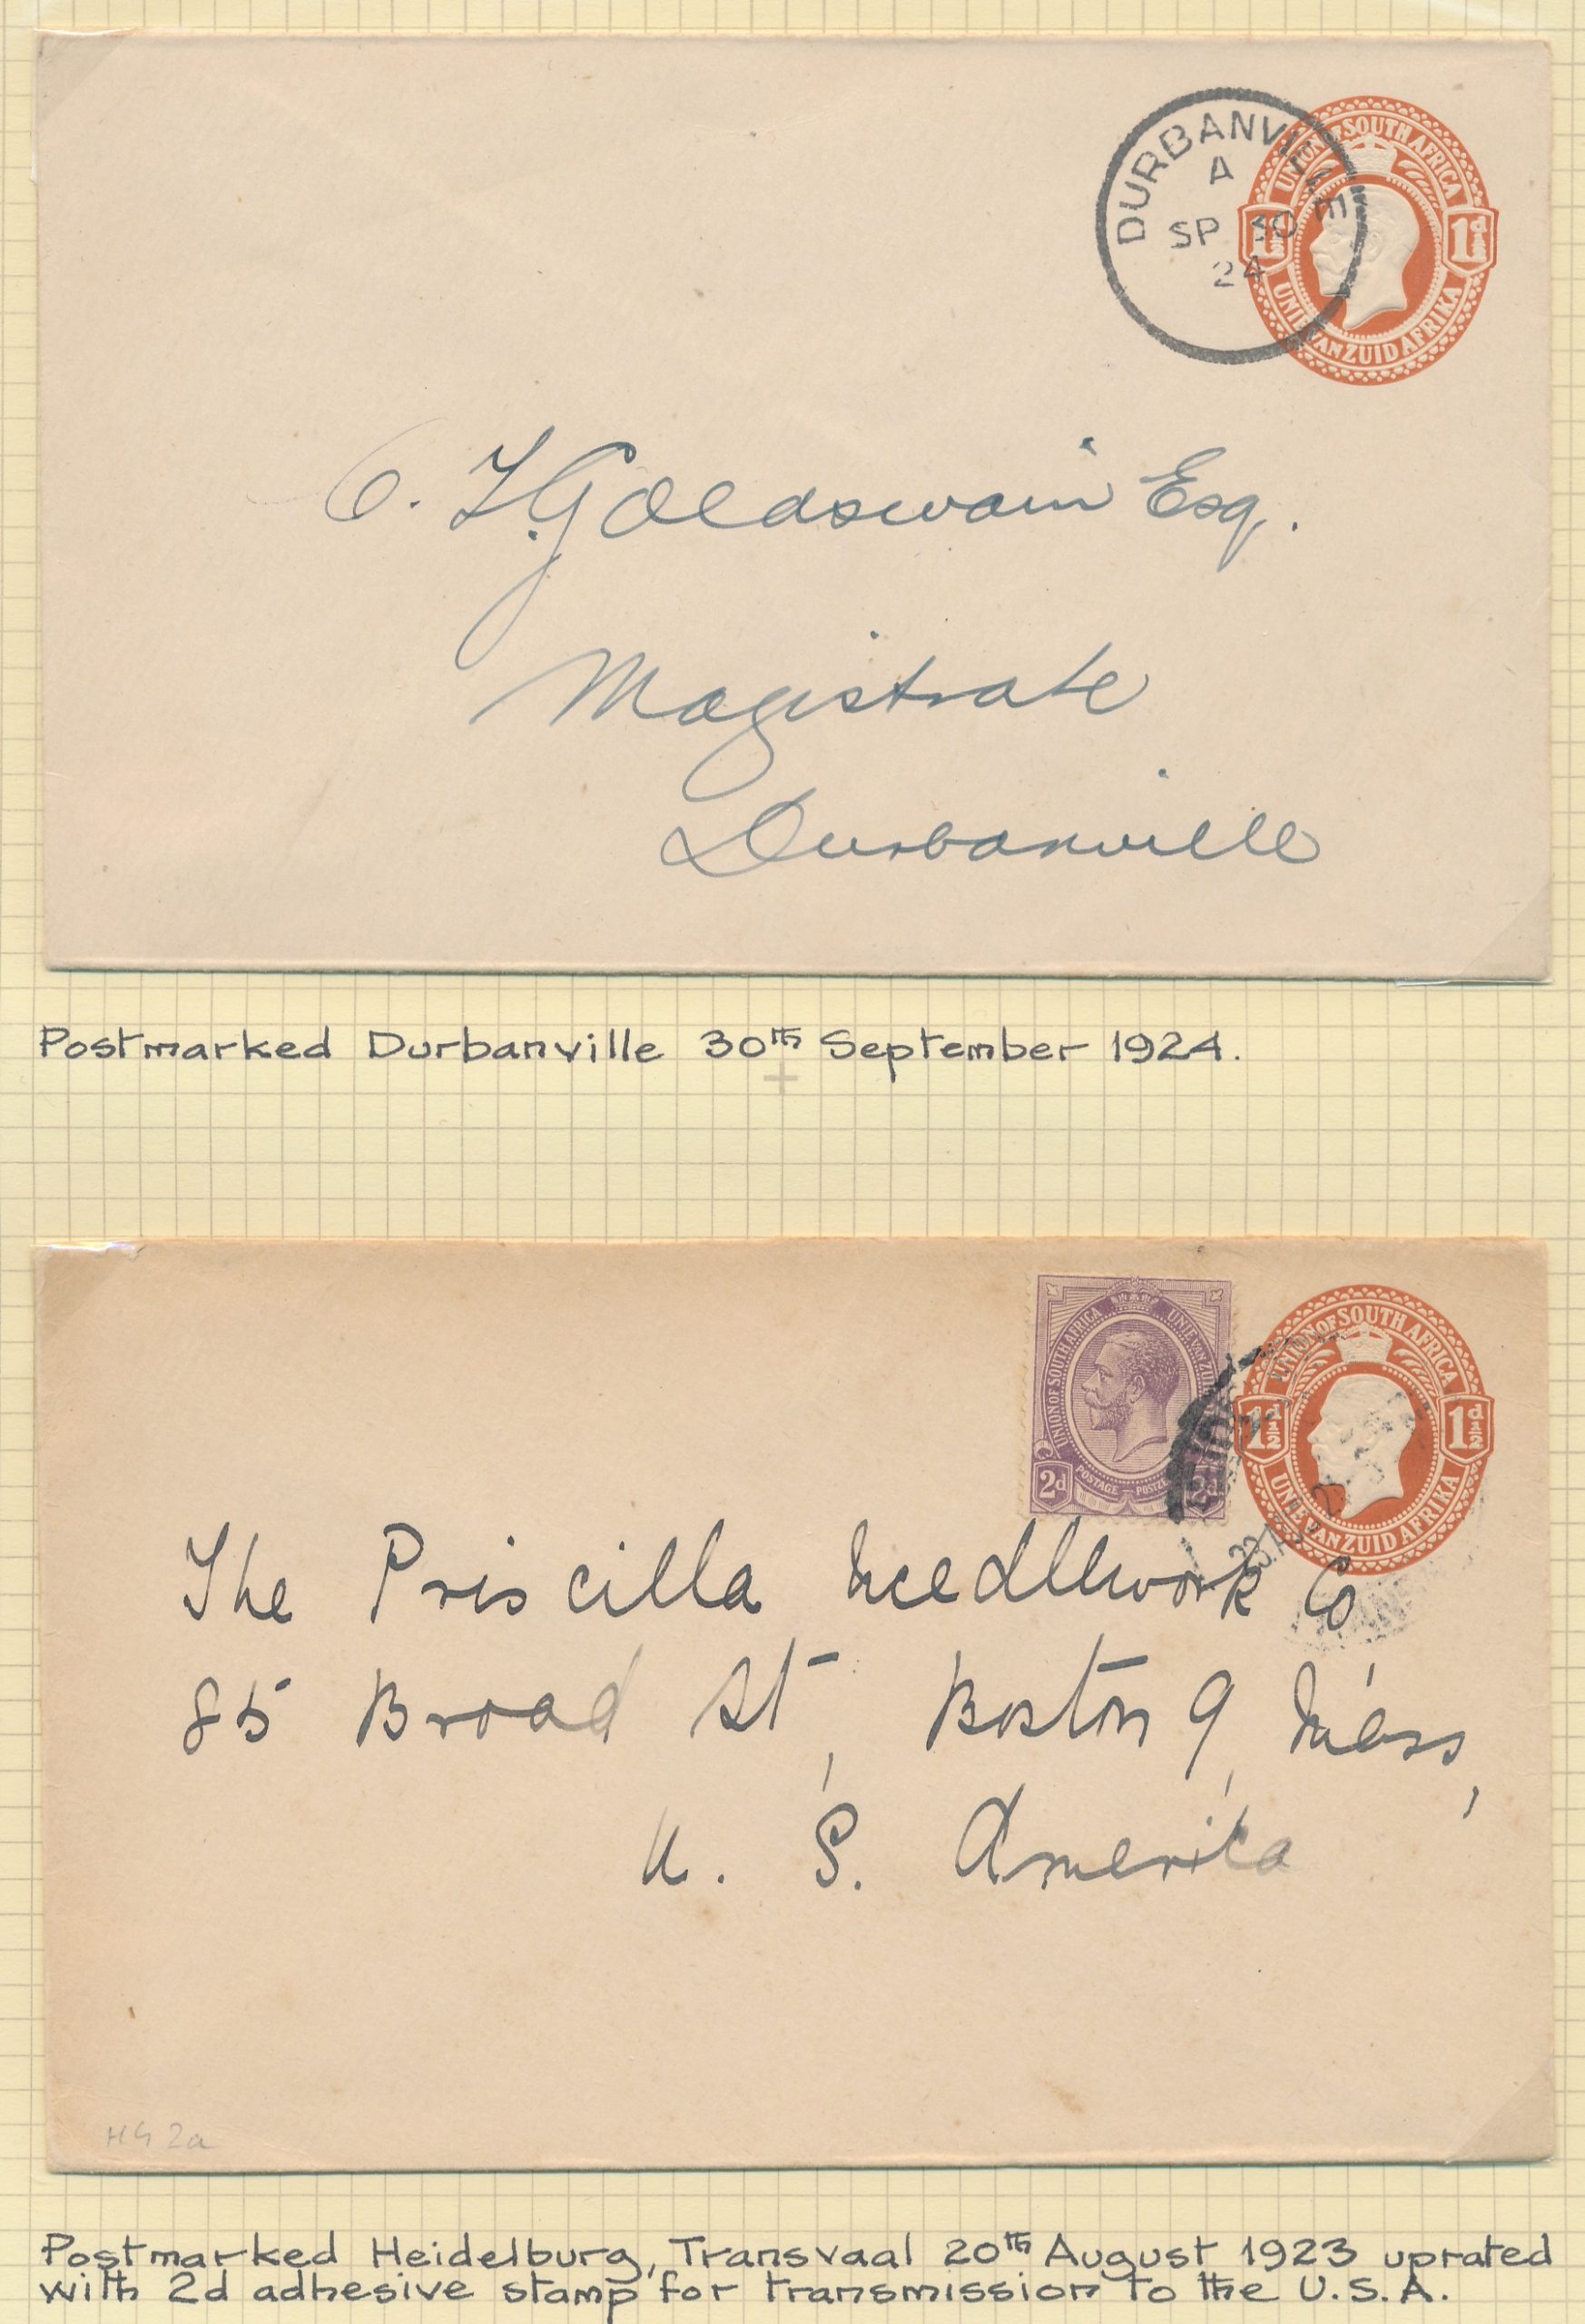 DURBANVILLE
A
SP 30
24
UNION OF SOUTH AFRICA
1½d 1½d
UNIE VAN ZUID AFRIKA
O. T. Goldswain Esq.
Magistrate
Durbanville
Postmarked Durbanville 30th September 1924.
UNION OF SOUTH AFRICA UNIE VAN ZUID
2d POSTAGE POSTZE 2d
UNION OF SOUTH AFRICA
1½d 1½d
UNIE VAN ZUID AFRIKA
The Priscilla Needlework Co
85 Broad St, Boston 9, Mass,
U. S. America
HG 2a
Postmarked Heidelburg, Transvaal 20th August 1923 uprated
with 2d adhesive stamp for transmission to the U.S.A.